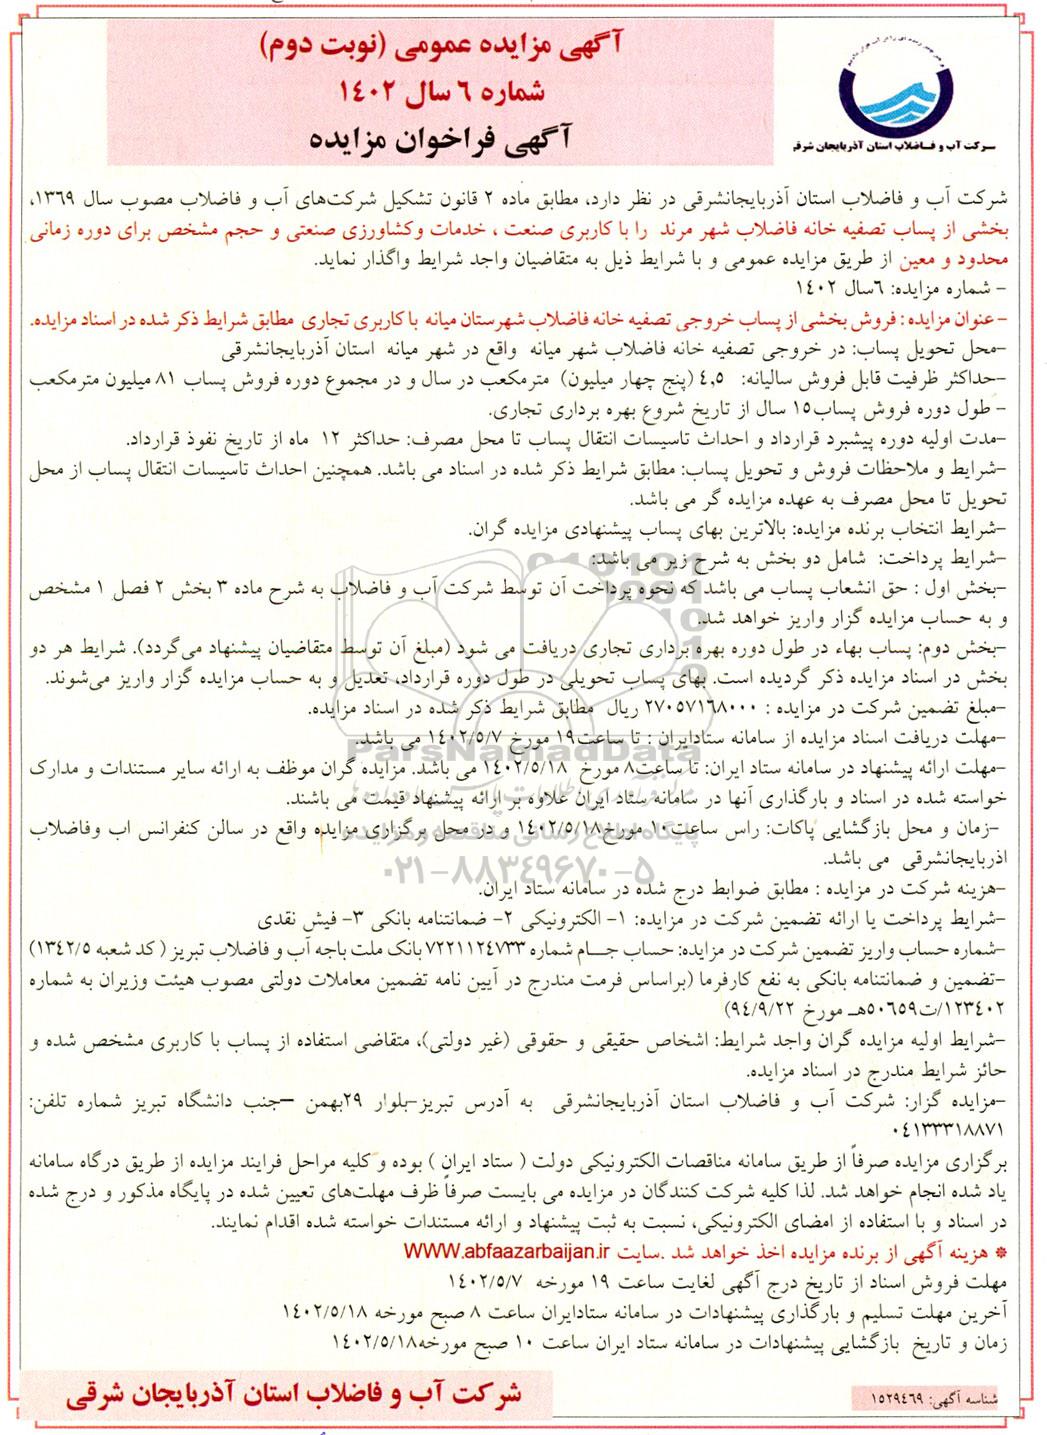 آگهی مزایده عمومی (نوبت دوم)
شماره ٦ سال ١٤٠٢
آگهی فراخوان مزایده
شرکت آب و فاضلاب استان آذربایجان شرقی
شرکت آب و فاضلاب استان آذربایجانشرقی در نظر دارد، مطابق ماده ٢ قانون تشکیل شرکت‌های آب و فاضلاب مصوب سال ١٣٦٩،
بخشی از پساب تصفیه خانه فاضلاب شهر مرند را با کاربری صنعت ، خدمات وکشاورزی صنعتی و حجم مشخص برای دوره زمانی
محدود و معین از طریق مزایده عمومی و با شرایط ذیل به متقاضیان واجد شرایط واگذار نماید.
- شماره مزایده: ٦سال ١٤٠٢
- عنوان مزایده : فروش بخشی از پساب خروجی تصفیه خانه فاضلاب شهرستان میانه با کاربری تجاری مطابق شرایط ذکر شده در اسناد مزایده.
-محل تحویل پساب: در خروجی تصفیه خانه فاضلاب شهر میانه واقع در شهر میانه استان آذربایجانشرقی
-حداکثر ظرفیت قابل فروش سالیانه: ٤,٥ (پنج چهار میلیون) مترمکعب در سال و در مجموع دوره فروش پساب ٨١ میلیون مترمکعب
- طول دوره فروش پساب١٥ سال از تاریخ شروع بهره برداری تجاری.
-مدت اولیه دوره پیشبرد قرارداد و احداث تاسیسات انتقال پساب تا محل مصرف: حداکثر ١٢ ماه از تاریخ نفوذ قرارداد.
-شرایط و ملاحظات فروش و تحویل پساب: مطابق شرایط ذکر شده در اسناد می باشد. همچنین احداث تاسیسات انتقال پساب از محل
تحویل تا محل مصرف به عهده مزایده گر می باشد.
-شرایط انتخاب برنده مزایده: بالاترین بهای پساب پیشنهادی مزایده گران.
-شرایط پرداخت: شامل دو بخش به شرح زیر می باشد:
-بخش اول : حق انشعاب پساب می باشد که نحوه پرداخت آن توسط شرکت آب و فاضلاب به شرح ماده ٣ بخش ٢ فصل ١ مشخص
و به حساب مزایده گزار واریز خواهد شد.
-بخش دوم: پساب بهاء در طول دوره بهره برداری تجاری دریافت می شود (مبلغ آن توسط متقاضیان پیشنهاد می‌گردد). شرایط هر دو
بخش در اسناد مزایده ذکر گردیده است. بهای پساب تحویلی در طول دوره قرارداد، تعدیل و به حساب مزایده گزار واریز می‌شوند.
-مبلغ تضمین شرکت در مزایده : ٢٧٠٥٧١٦٨٠٠٠ ریال مطابق شرایط ذکر شده در اسناد مزایده.
-مهلت دریافت اسناد مزایده از سامانه ستادایران : تا ساعت١٩ مورخ ١٤٠٢/٥/٧ می باشد.
ParsNamadData
-مهلت ارائه پیشنهاد در سامانه ستاد ایران: تا ساعت٨ مورخ ١٤٠٢/٥/١٨ می باشد. مزایده گران موظف به ارائه سایر مستندات و مدارک
خواسته شده در اسناد و بارگذاری آنها در سامانه ستاد ایران علاوه بر ارائه پیشنهاد قیمت می باشند.
-زمان و محل بازگشایی پاکات: راس ساعت١٠ مورخ١٤٠٢/٥/١٨ و در محل برگزاری مزایده واقع در سالن کنفرانس اب وفاضلاب
پایگاه اطلاع رسانی مناقصه و مزایده
اذربایجانشرقی می باشد.
٠٢١-٨٨٣٤٩٦٧٠-٥
-هزینه شرکت در مزایده : مطابق ضوابط درج شده در سامانه ستاد ایران.
-شرایط پرداخت یا ارائه تضمین شرکت در مزایده: ١- الکترونیکی ٢- ضمانتنامه بانکی ٣- فیش نقدی
-شماره حساب واریز تضمین شرکت در مزایده: حساب جـــام شماره ٧٢٢١١٢٤٧٣٣ بانک ملت باجه آب و فاضلاب تبریز ( کد شعبه ١٣٤٢/٥)
-تضمین و ضمانتنامه بانکی به نفع کارفرما (براساس فرمت مندرج در آیین نامه تضمین معاملات دولتی مصوب هیئت وزیران به شماره
١٢٣٤٠٢/ت٥٠٦٥٩هـ مورخ ٩٤/٩/٢٢)
-شرایط اولیه مزایده گران واجد شرایط: اشخاص حقیقی و حقوقی (غیر دولتی)، متقاضی استفاده از پساب با کاربری مشخص شده و
حائز شرایط مندرج در اسناد مزایده.
-مزایده گزار: شرکت آب و فاضلاب استان آذربایجانشرقی به آدرس تبریز-بلوار ٢٩بهمن –جنب دانشگاه تبریز شماره تلفن:
٠٤١٣٣٣١٨٨٧١
برگزاری مزایده صرفاً از طریق سامانه مناقصات الکترونیکی دولت ( ستاد ایران ) بوده و کلیه مراحل فرایند مزایده از طریق درگاه سامانه
یاد شده انجام خواهد شد. لذا کلیه شرکت کنندگان در مزایده می بایست صرفاً ظرف مهلت‌های تعیین شده در پایگاه مذکور و درج شده
در اسناد و با استفاده از امضای الکترونیکی، نسبت به ثبت پیشنهاد و ارائه مستندات خواسته شده اقدام نمایند.
* هزینه آگهی از برنده مزایده اخذ خواهد شد .سایت WWW.abfaazarbaijan.ir
مهلت فروش اسناد از تاریخ درج آگهی لغایت ساعت ١٩ مورخه ١٤٠٢/٥/٧
آخرین مهلت تسلیم و بارگذاری پیشنهادات در سامانه ستادایران ساعت ٨ صبح مورخه ١٤٠٢/٥/١٨
زمان و تاریخ بازگشایی پیشنهادات در سامانه ستاد ایران ساعت ١٠ صبح مورخه١٤٠٢/٥/١٨
شناسه آگهی: ١٥٢٩٤٦٩
شرکت آب و فاضلاب استان آذربایجان شرقی